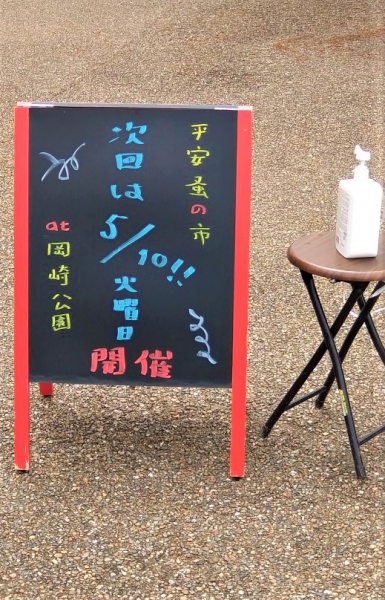 平安蚤の市
次回は
5/10!!
火曜日
開催
at 岡崎公園